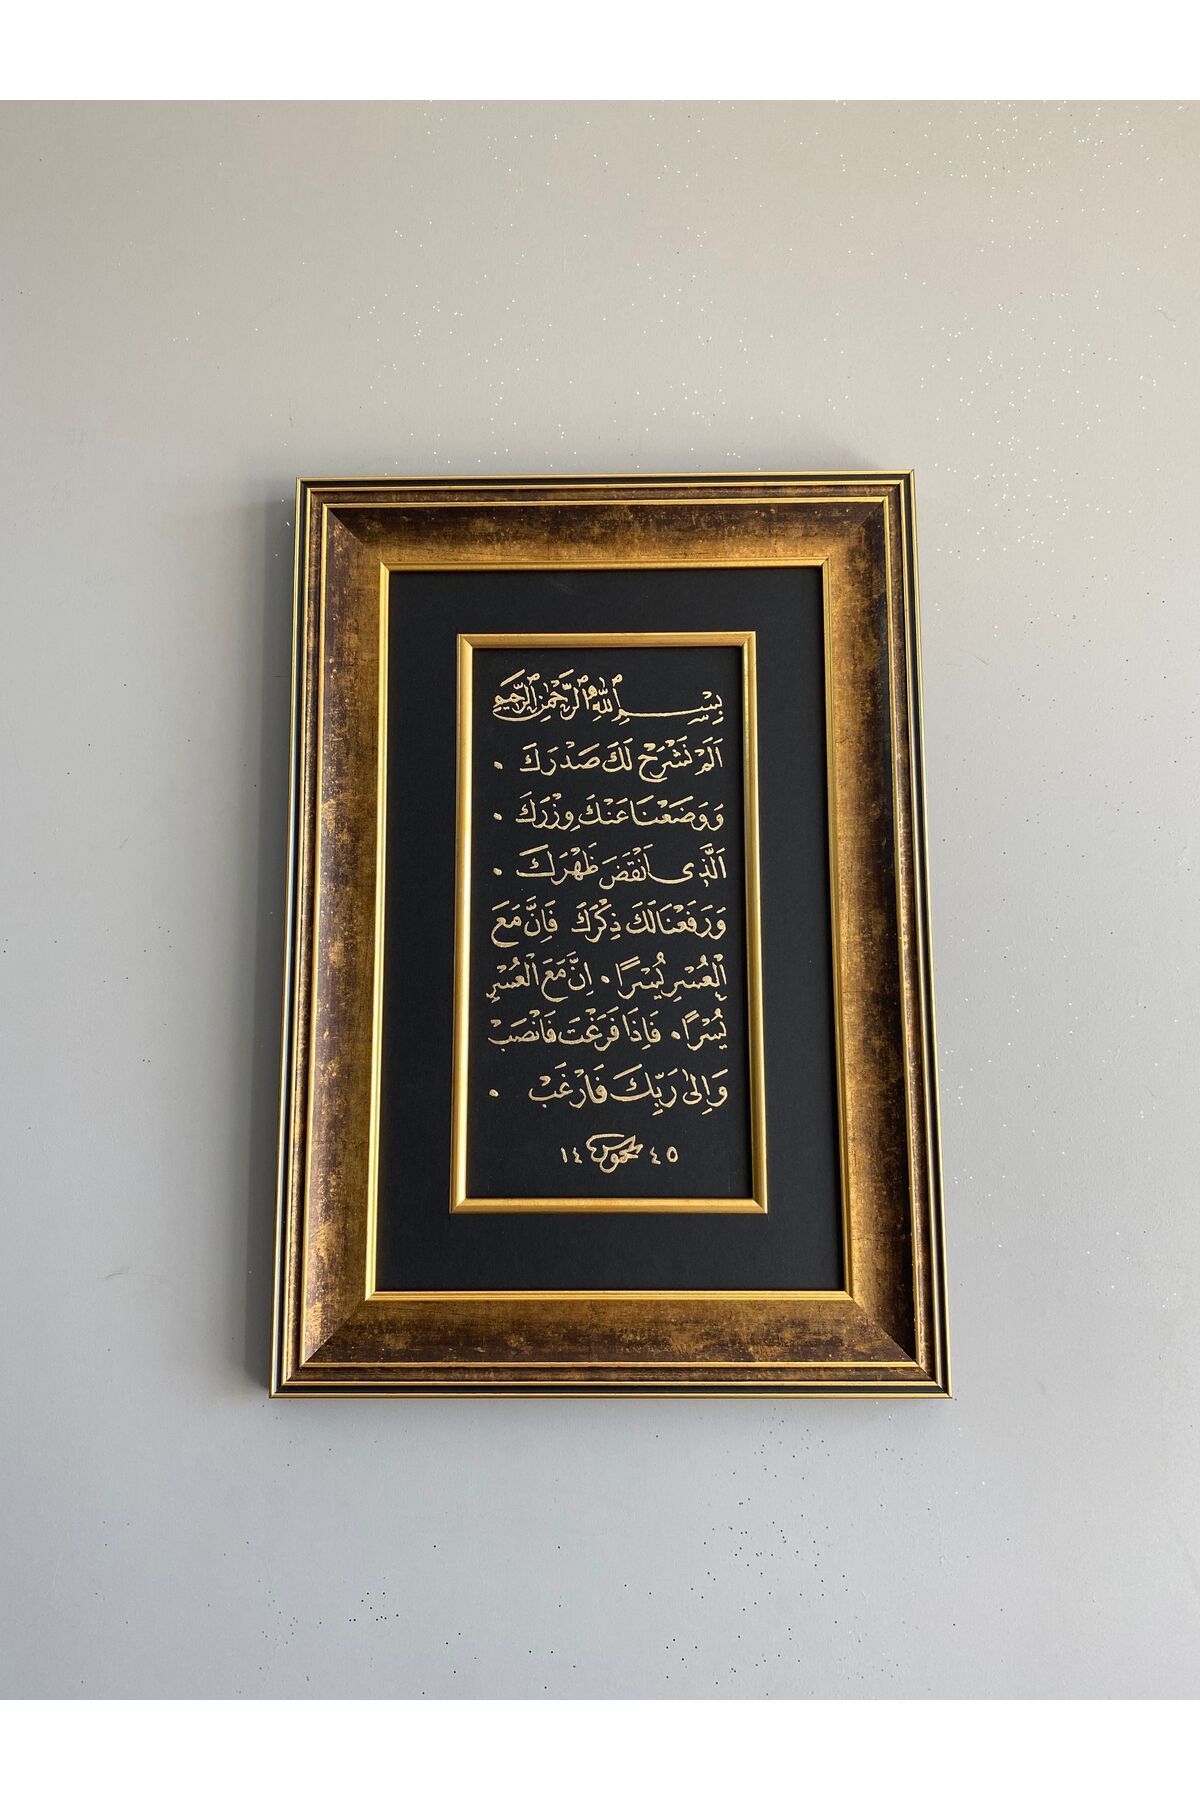 بِسْمِ اللّٰهِ الرَّحْمٰنِ الرَّحِيمِ
اَلَمْ نَشْرَحْ لَكَ صَدْرَكَ .
وَوَضَعْنَا عَنْكَ وِزْرَكَ .
اَلَّذِى اَنْقَضَ ظَهْرَكَ .
وَرَفَعْنَا لَكَ ذِكْرَكَ فَاِنَّ مَعَ
الْعُسْرِ يُسْرًا . اِنَّ مَعَ الْعُسْرِ
يُسْرًا . فَاِذَا فَرَغْتَ فَانْصَبْ
وَاِلٰى رَبِّكَ فَارْغَبْ .
١٤ ٤٥